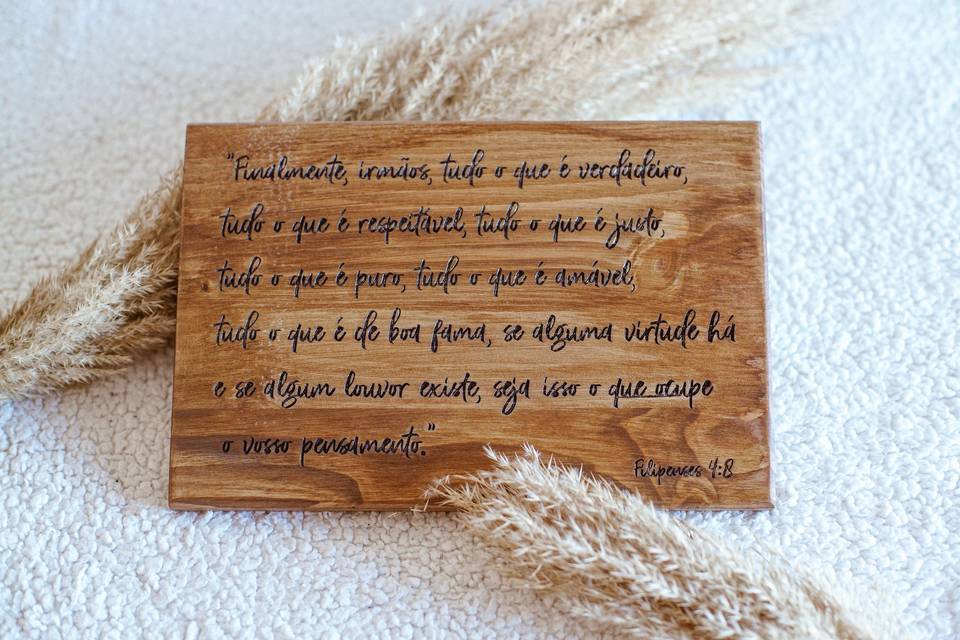 "Finalmente, irmãos, tudo o que é verdadeiro,
tudo o que é respeitável, tudo o que é justo,
tudo o que é puro, tudo o que é amável,
tudo o que é de boa fama, se alguma virtude há
e se algum louvor existe, seja isso o que ocupe
o vosso pensamento."
Filipenses 4:8